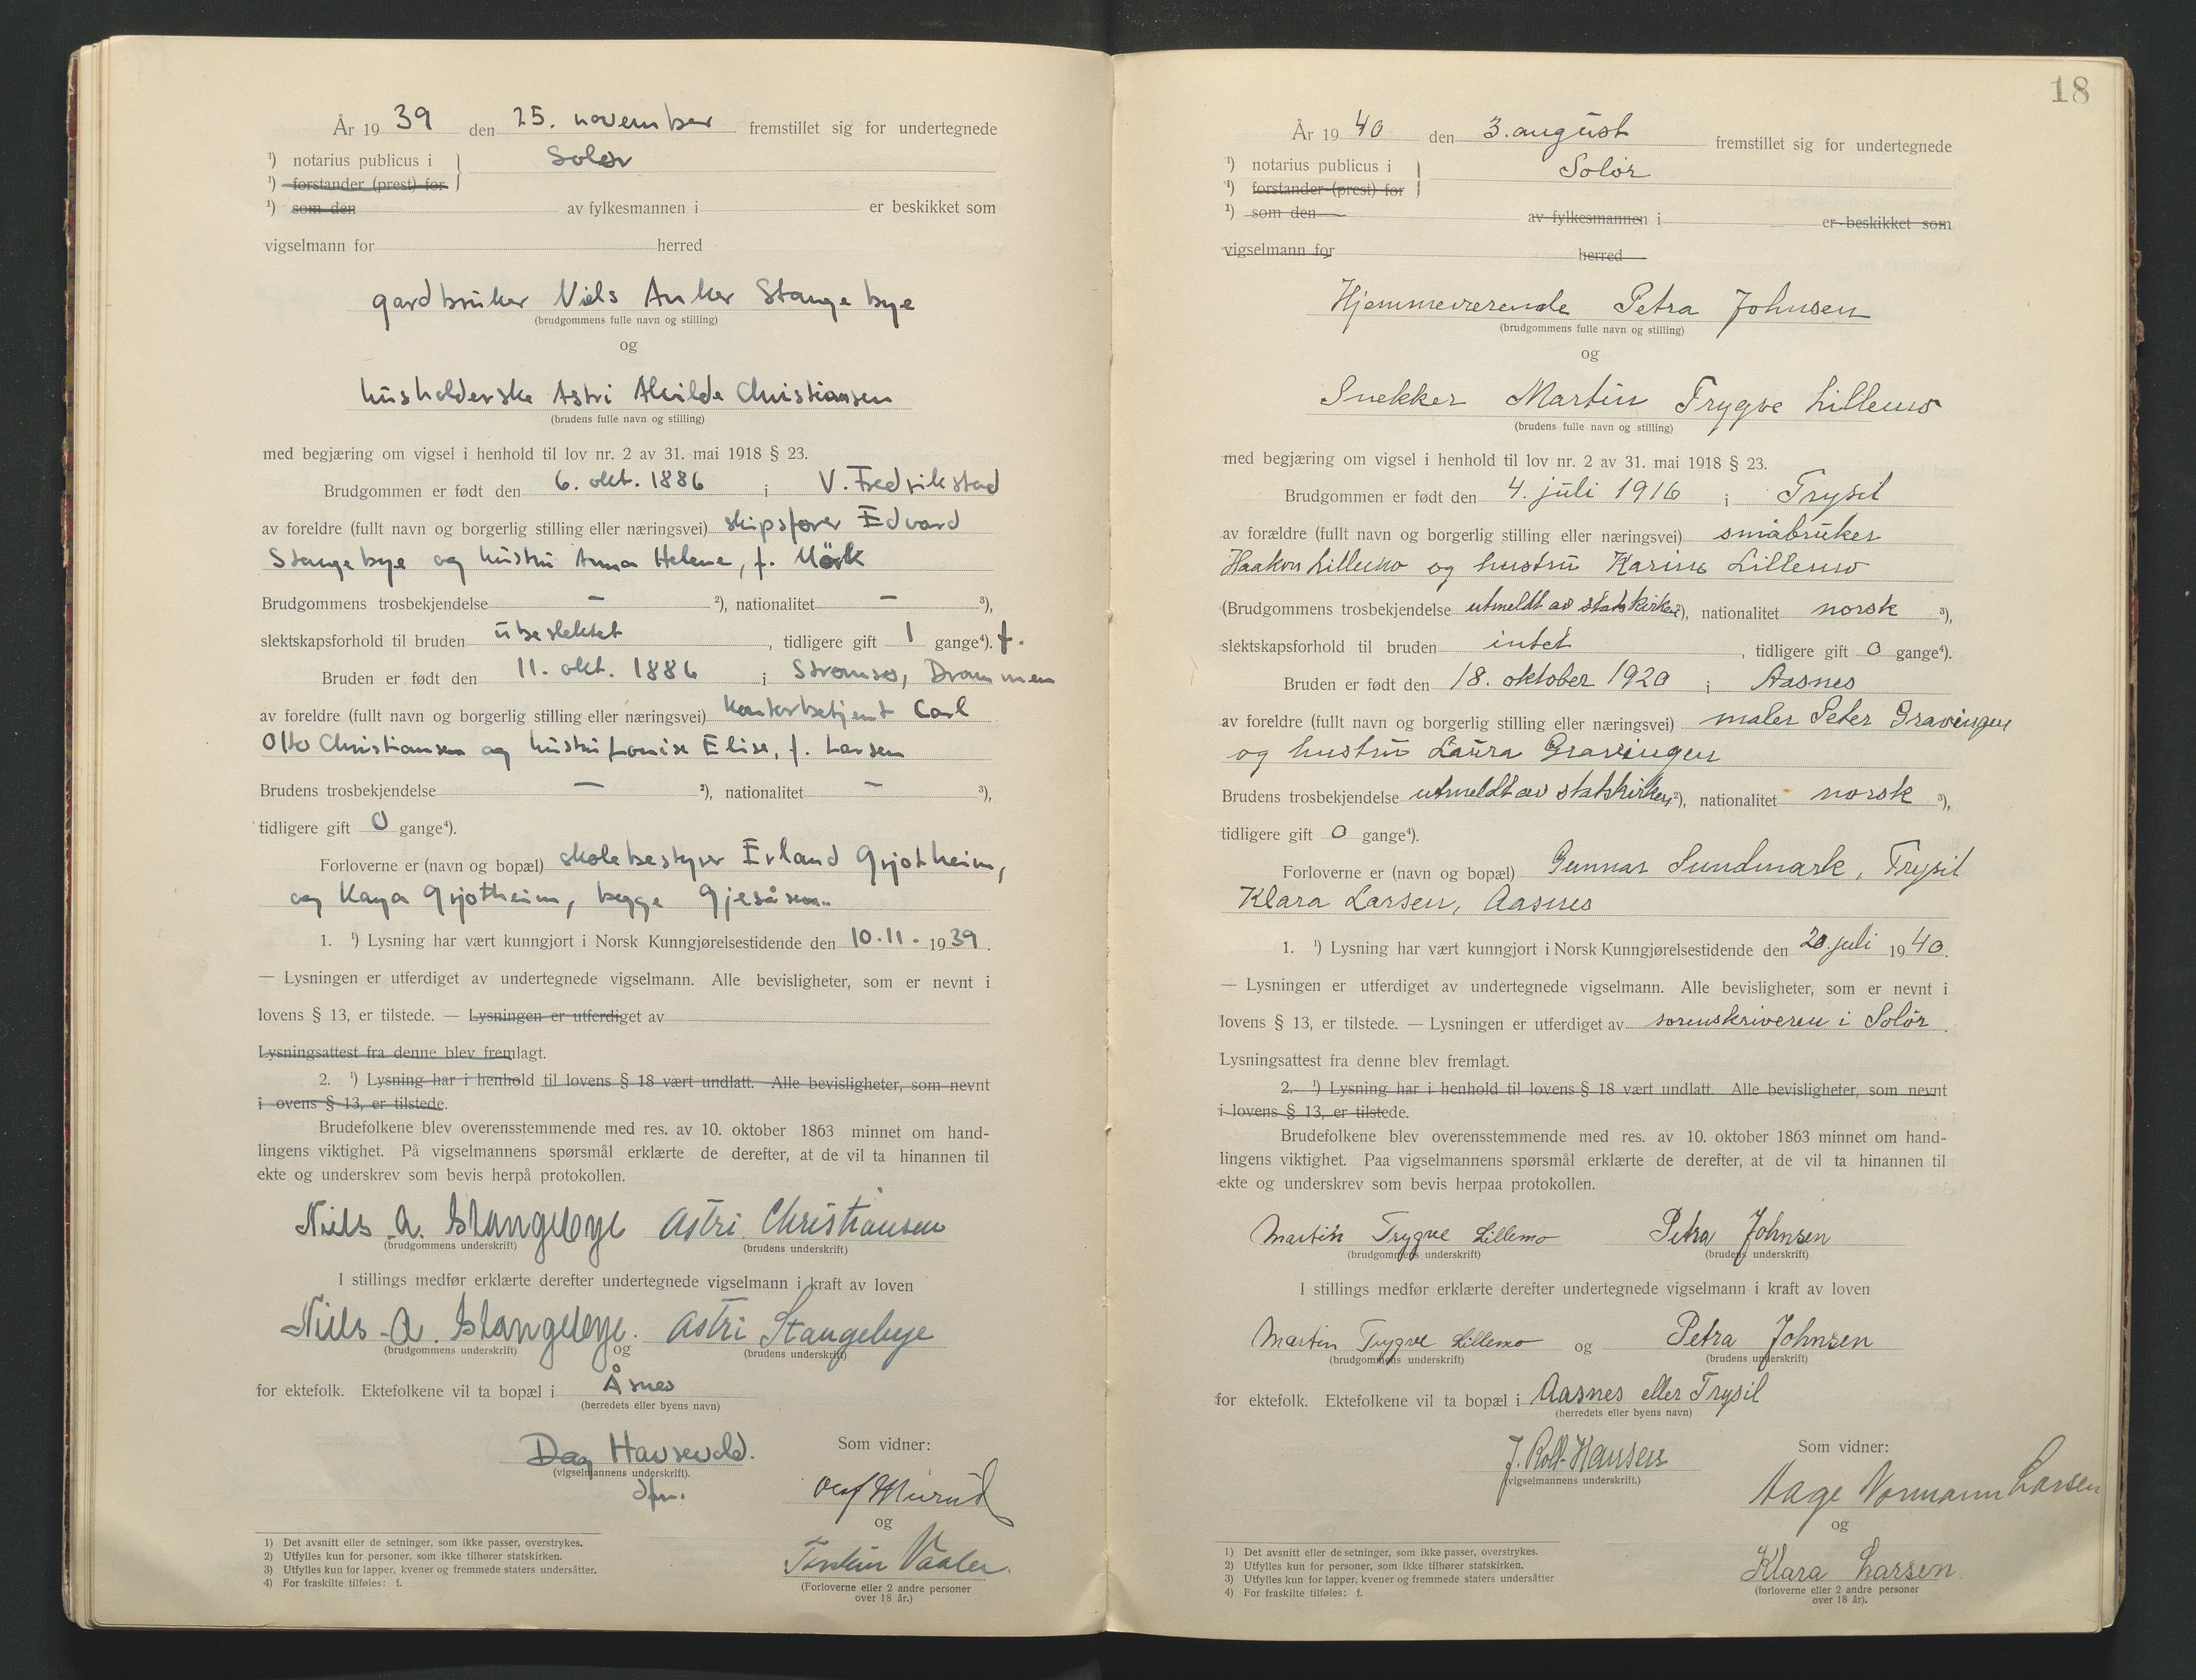 År 19 39 den 25. november fremstillet sig for undertegnede
¹) notarius publicus i } Solør
¹) forstander (prest) for
¹) som den av fylkesmannen i er beskikket som
vigselmann for herred
gardbruker Niels Anker Stangebye
(brudgommens fulle navn og stilling)
og
husholderske Astri Alvilde Christiansen
(brudens fulle navn og stilling)
med begjæring om vigsel i henhold til lov nr. 2 av 31. mai 1918 § 23.
Brudgommen er født den 6. okt. 1886 i V. Fredrikstad
av foreldre (fullt navn og borgerlig stilling eller næringsvei) skipsfører Edvard
Stangebye og hustru Anna Helene, f. Mörk
Brudgommens trosbekjendelse — ²), nationalitet — ³),
slektskapsforhold til bruden ubeslektet, tidligere gift 1 gange⁴). f.
Bruden er født den 11. okt. 1886 i Strømsø, Drammen
av foreldre (fullt navn og borgerlig stilling eller næringsvei) kontorbetjent Carl
Otto Christiansen og hustru Louise Elise, f. Larsen
Brudens trosbekjendelse — ²), nationalitet — ³),
tidligere gift 0 gange⁴).
Forloverne er (navn og bopæl) skolebestyrer Erland Grjotheim,
og Kaya Grjotheim, begge Gjesåsen.
1. ¹) Lysning har vært kunngjort i Norsk Kunngjørelsestidende den 10.11. 1939.
— Lysningen er utferdiget av undertegnede vigselmann. Alle bevisligheter, som er nevnt i
lovens § 13, er tilstede. — Lysningen er utferdiget av
Lysningsattest fra denne blev fremlagt.
2. ¹) Lysning har i henhold til lovens § 18 vært undlatt. Alle bevisligheter, som nevnt
i ovens § 13, er tilstede.
Brudefolkene blev overensstemmende med res. av 10. oktober 1863 minnet om hand-
lingens viktighet. På vigselmannens spørsmål erklærte de derefter, at de vil ta hinannen til
ekte og underskrev som bevis herpå protokollen.
Niels A. Stangebye Astri Christiansen
(brudgommens underskrift) (brudens underskrift)
I stillings medfør erklærte derefter undertegnede vigselmann i kraft av loven
Niels A. Stangebye. og Astri Stangebye
(brudgommens underskrift) (brudens underskrift)
for ektefolk. Ektefolkene vil ta bopæl i Åsnes
(herredets eller byens navn)
Dag Hausevold.
(vigselmannens underskrift).
dfm.
Som vidner:
Olaf Murud
og
Torstein Vaaler.
(Forloverne eller 2 andre personer
over 18 år.)
1) Det avsnitt eller de setninger, som ikke passer, overstrykes.
2) Utfylles kun for personer, som ikke tilhører statskirken.
3) Utfylles kun for lapper, kvener og fremmede staters undersåtter.
4) For fraskilte tilføles: f.
18
År 19 40 den 3. august fremstillet sig for undertegnede
¹) notarius publicus i } Solör
¹) forstander (prest) for
¹) som den av fylkesmannen i er beskikket som
vigselmann for herred
Hjemmeværende Petra Johnsen
(brudgommens fulle navn og stilling)
og
Snekker Martin Trygve Lillemo
(brudens fulle navn og stilling)
med begjæring om vigsel i henhold til lov nr. 2 av 31. mai 1918 § 23.
Brudgommen er født den 4. juli 1916 i Trysil
av forældre (fullt navn og borgerlig stilling eller næringsvei) småbruker
Haakon Lillemo og hustru Karine Lillemo
(Brudgommens trosbekjendelse utmeldt av statskirken ²), nationalitet norsk ³),
slektskapsforhold til bruden intet, tidligere gift 0 gange⁴).
Bruden er født den 18. oktober 1920 i Aasnes
av foreldre (fullt navn og borgerlig stilling eller næringsvei) maler Peter Gravingen
og hustru Laura Gravingen
Brudens trosbekjendelse utmeldt av statskirken ²), nationalitet norsk ³),
tidligere gift 0 gange⁴).
Forloverne er (navn og bopæl) Gunnar Sundmark, Trysil
Klara Larsen, Aasnes
1. ¹) Lysning har vært kunngjort i Norsk Kunngjørelsestidende den 20. juli 1940.
— Lysningen er utferdiget av undertegnede vigselmann. Alle bevisligheter, som er nevnt i
lovens § 13, er tilstede. — Lysningen er utferdiget av sorenskriveren i Solör.
Lysningsattest fra denne blev fremlagt.
2. ¹) Lysning har i henhold til lovens § 18 vært undlatt. Alle bevisligheter, som nevnt
i lovens § 13, er tilstede.
Brudefolkene blev overensstemmende med res. av 10. oktober 1863 minnet om hand-
lingens viktighet. Paa vigselmannens spørsmål erklærte de derefter, at de vil ta hinannen til
ekte og underskrev som bevis herpaa protokollen.
Martin Trygve Lillemo Petra Johnsen
(brudgommens underskrift) (brudens underskrift)
I stillings medfør erklærte derefter undertegnede vigselmann i kraft av loven
Martin Trygve Lillemo og Petra Johnsen
(brudgommens underskrift) (brudens underskrift)
for ektefolk. Ektefolkene vil ta bopæl i Aasnes eller Trysil
(herredets eller byens navn)
J. Roll-Hansen
(vigselmannens underskrift.)
Som vidner:
Aage Normann Larsen
og
Klara Larsen.
(forloverne eller 2 andre personer
over 18 år).
1) Det avsnitt eller de setninger, som ikke passer, overstrykes.
2) Utfylles kun for personer, som ikke tilhører statskirken.
3) Utfylles kun for lapper, kvener og fremmede staters undersåtter
4) For fraskilte tilføles: f.